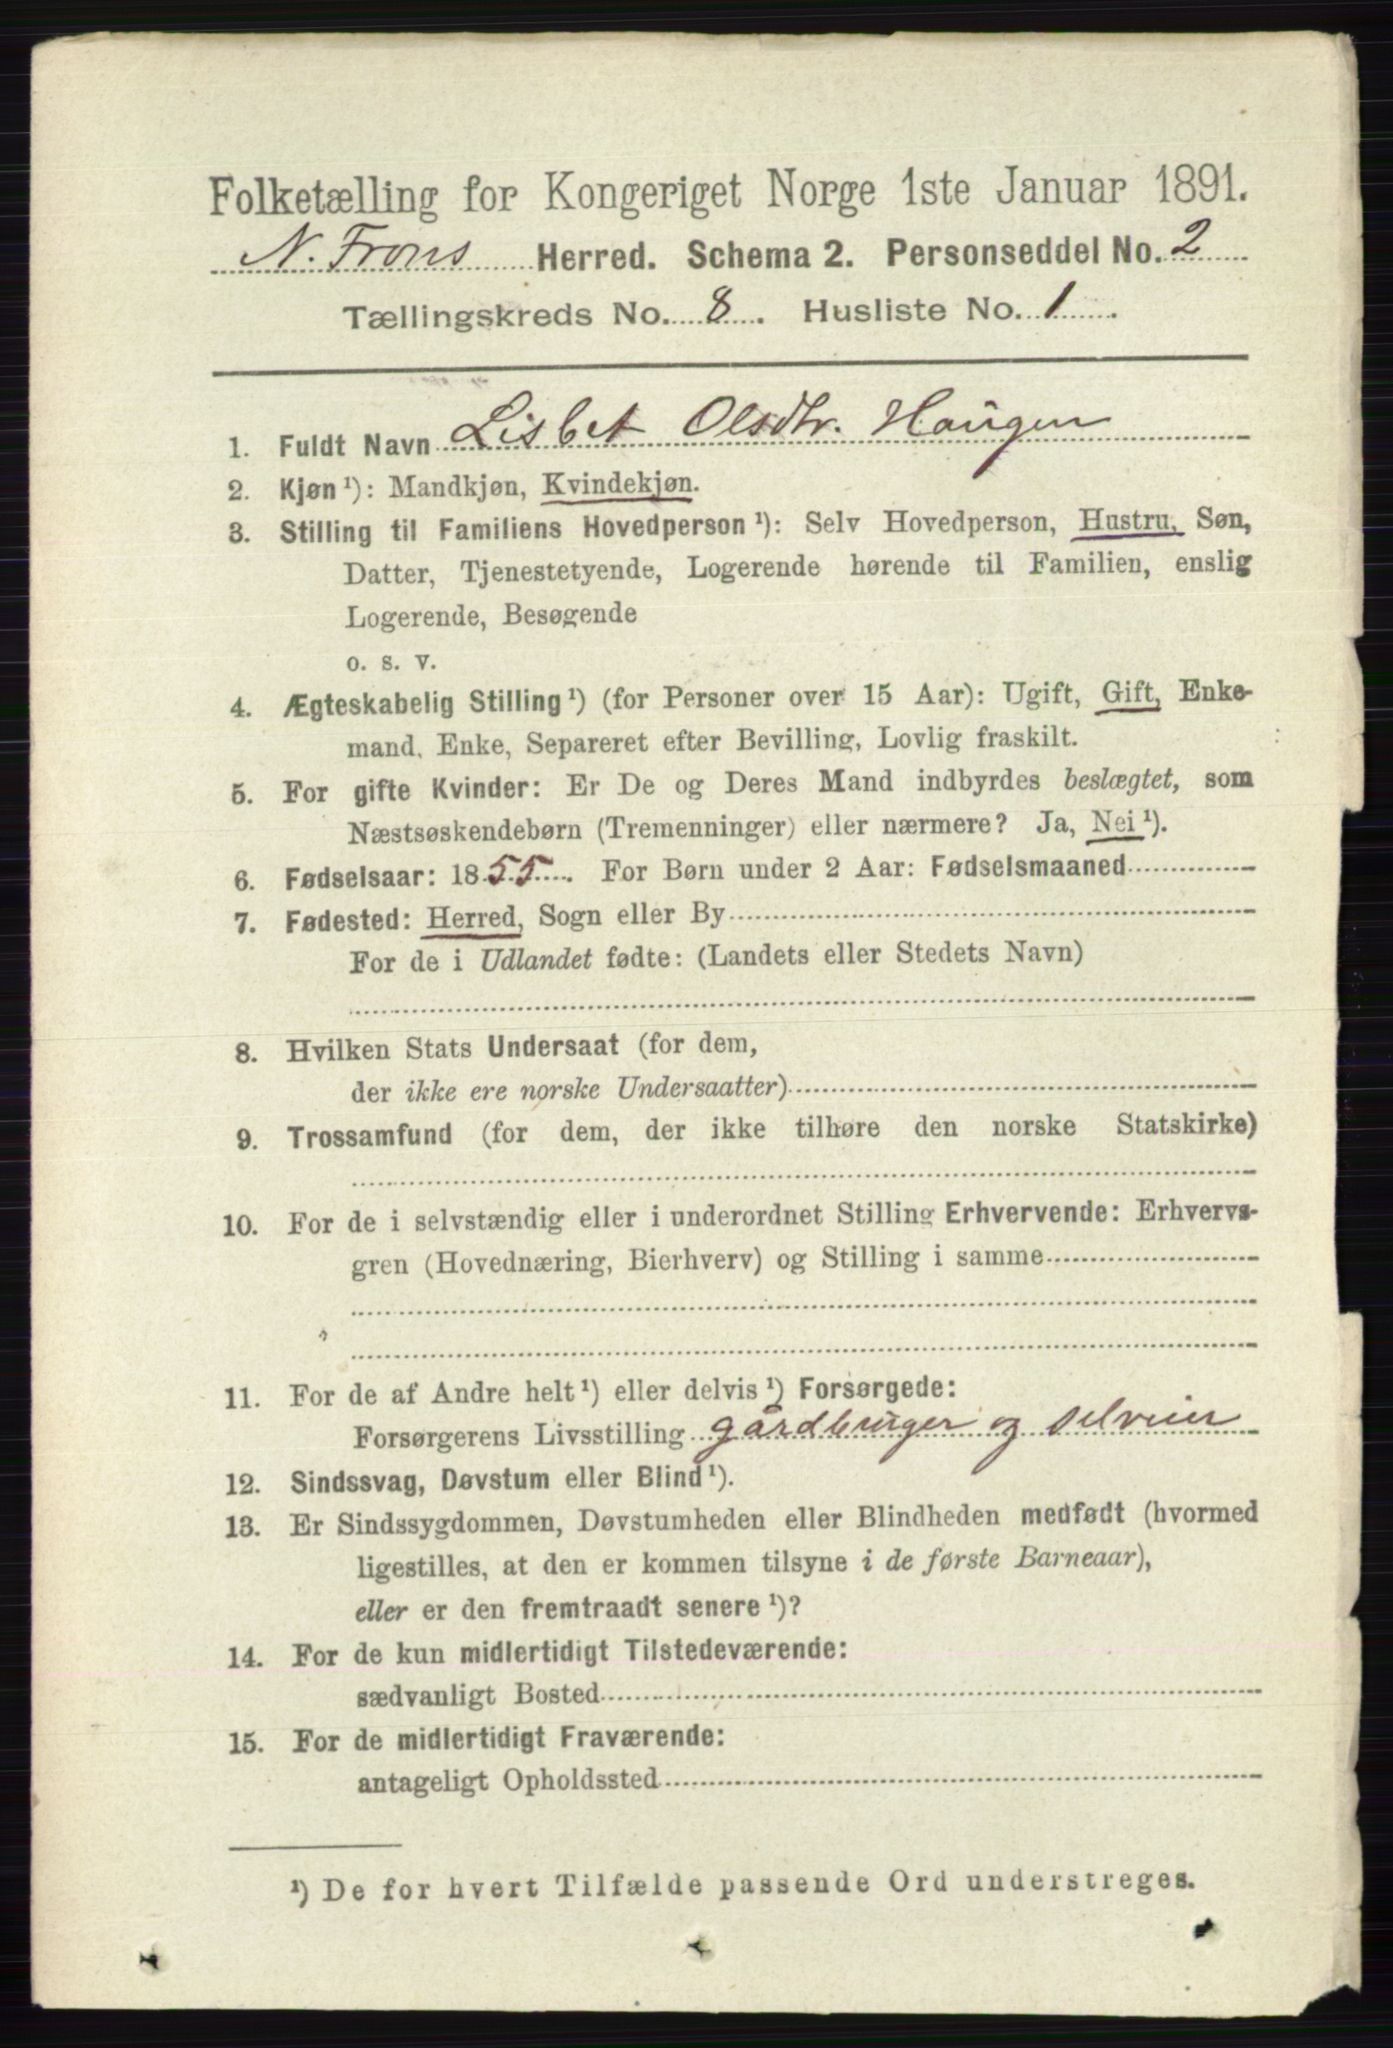 Folketælling for Kongeriget Norge 1ste Januar 1891.
N. Frons Herred. Schema 2. Personseddel No. 2
Tællingskreds No. 8. Husliste No. 1.
1. Fuldt Navn Lisbet Olsdtr. Haugen
2. Kjøn ¹): Mandkjøn, Kvindekjøn.
3. Stilling til Familiens Hovedperson ¹): Selv Hovedperson, Hustru, Søn,
Datter, Tjenestetyende, Logerende hørende til Familien, enslig
Logerende, Besøgende
o. s. v.
4. Ægteskabelig Stilling ¹) (for Personer over 15 Aar): Ugift, Gift, Enke-
mand, Enke, Separeret efter Bevilling, Lovlig fraskilt.
5. For gifte Kvinder: Er De og Deres Mand indbyrdes beslægtet, som
Næstsøskendebørn (Tremenninger) eller nærmere? Ja, Nei ¹).
6. Fødselsaar: 1855. For Børn under 2 Aar: Fødselsmaaned
7. Fødested: Herred, Sogn eller By
For de i Udlandet fødte: (Landets eller Stedets Navn)
8. Hvilken Stats Undersaat (for dem,
der ikke ere norske Undersaatter)
9. Trossamfund (for dem, der ikke tilhøre den norske Statskirke)
10. For de i selvstændig eller i underordnet Stilling Erhvervende: Erhvervs-
gren (Hovednæring, Bierhverv) og Stilling i samme
11. For de af Andre helt ¹) eller delvis ¹) Forsørgede:
Forsørgerens Livsstilling gårdbruger og selveier
12. Sindssvag, Døvstum eller Blind ¹).
13. Er Sindssygdommen, Døvstumheden eller Blindheden medfødt (hvormed
ligestilles, at den er kommen tilsyne i de første Barneaar),
eller er den fremtraadt senere ¹)?
14. For de kun midlertidigt Tilstedeværende:
sædvanligt Bosted
15. For de midlertidigt Fraværende:
antageligt Opholdssted
¹) De for hvert Tilfælde passende Ord understreges.